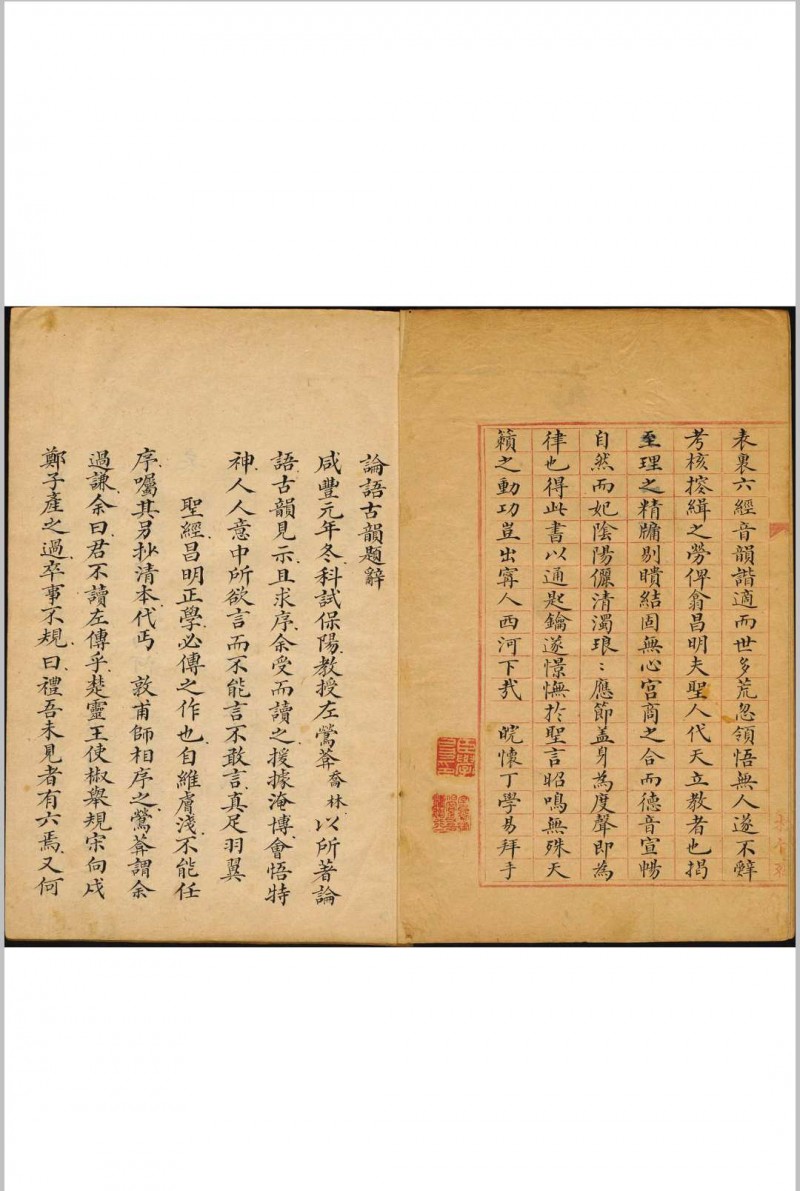 表裏六經音韻諧適而世多荒忽領悟無人遂不辤
考核摉緝之勞俾翕昌明夫聖人代天立教者也揭
至理之精牖剔瞶結固無心宮商之合而德音宣暢
自然而妃陰陽儷清濁琅〻應節蓋身為度聲即為
律也得此書以通匙鑰遂憬憮於聖言昭鳴無殊天
籟之動功豈出甯人西河下㢤　皖懷丁學易拜手
論語古韻題辭
咸豐元年冬科試保陽教授左鶯莾喬林以所著論
語古韻見示且求序余受而讀之援據淹博會悟特
神人人意中所欲言而不能言不敢言真足羽翼
聖經昌明正學必傳之作也自維膚淺不能任
序囑其另抄清本代丐　敦甫師相序之鶯莾謂余
過謙余曰君不讀左傳乎楚靈王使椒舉規宋向戌
鄭子產之過卒事不規曰禮吾未見者有六焉又何